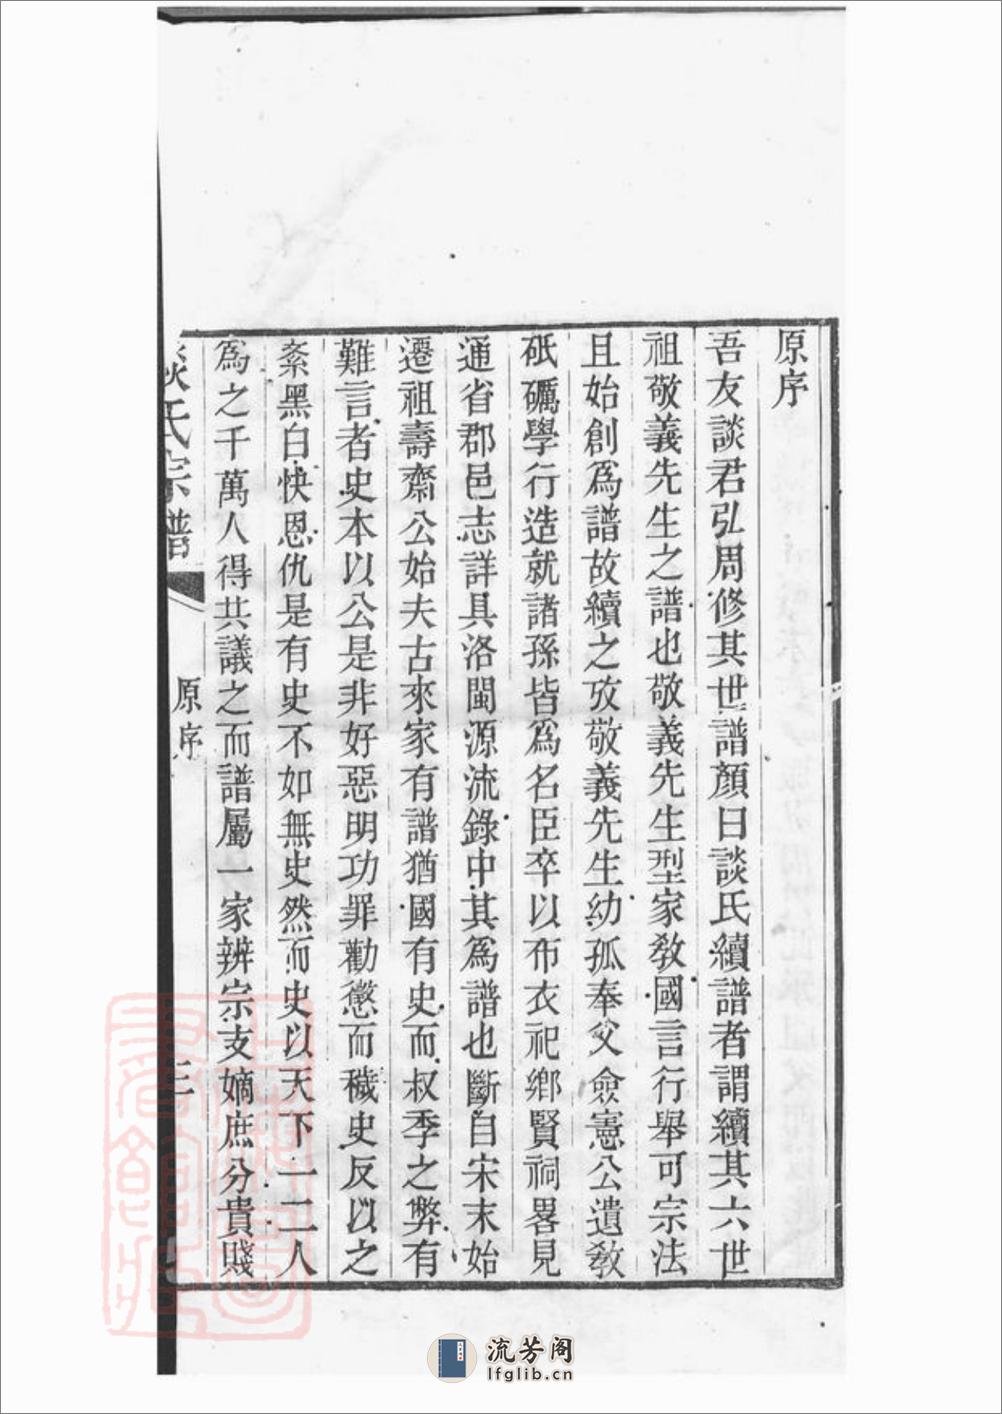 原序
吾友談君弘周修其世譜顏曰談氏續譜者謂續其六世
祖敬義先生之譜也敬義先生型家敎國言行舉可宗法
且始創爲譜故續之攷敬義先生幼孤奉父僉憲公遺敎
砥礪學行造就諸孫皆爲名臣卒以布衣祀鄉賢祠畧見
通省郡邑志詳具洛閩源流錄中其爲譜也斷自宋末始
遷祖壽齋公始夫古來家有譜猶國有史而叔季之弊有
難言者史本以公是非好惡明功罪勸懲而穢史反以之
紊黑白快恩仇是有史不如無史然而史以天下一二人
爲之千萬人得共議之而譜屬一家辨宗支嫡庶分貴賤
談氏宗譜
原序
三
流芳阁
lfglib.cn